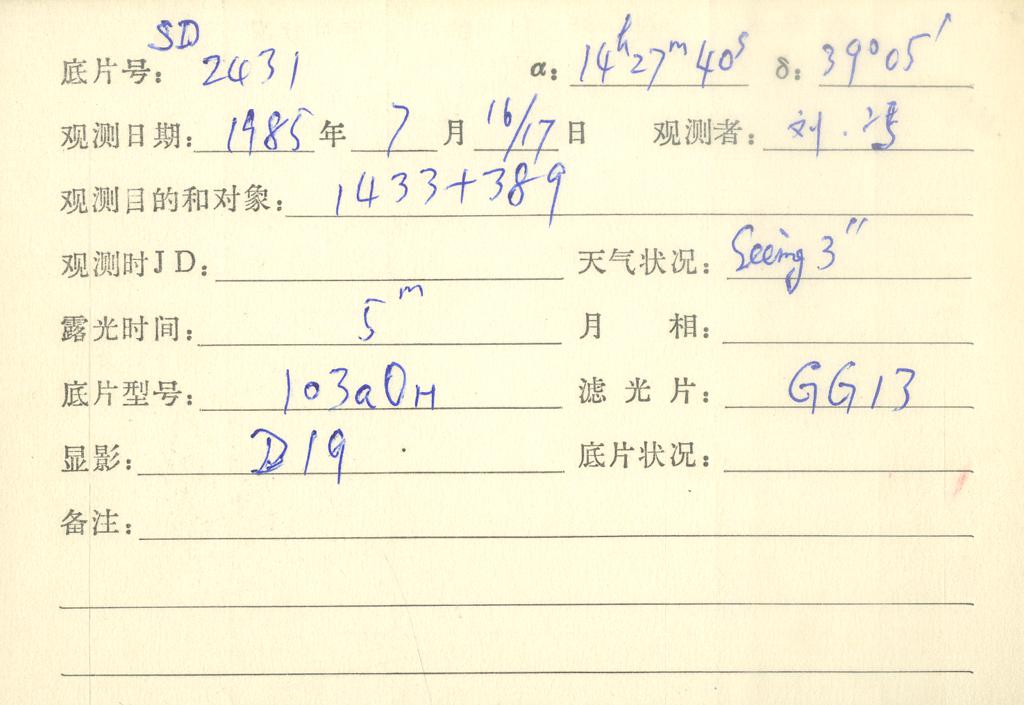 SD
底片号: 2431 α: 14h27m40s δ: 39°05′
观测日期: 1985年7月16/17日 观测者: 刘.冯
观测目的和对象: 1433+389
观测时JD: 天气状况: Seeing 3″
露光时间: 5m 月相:
底片型号: 103aOH 滤光片: GG13
显影: D19 底片状况:
备注: